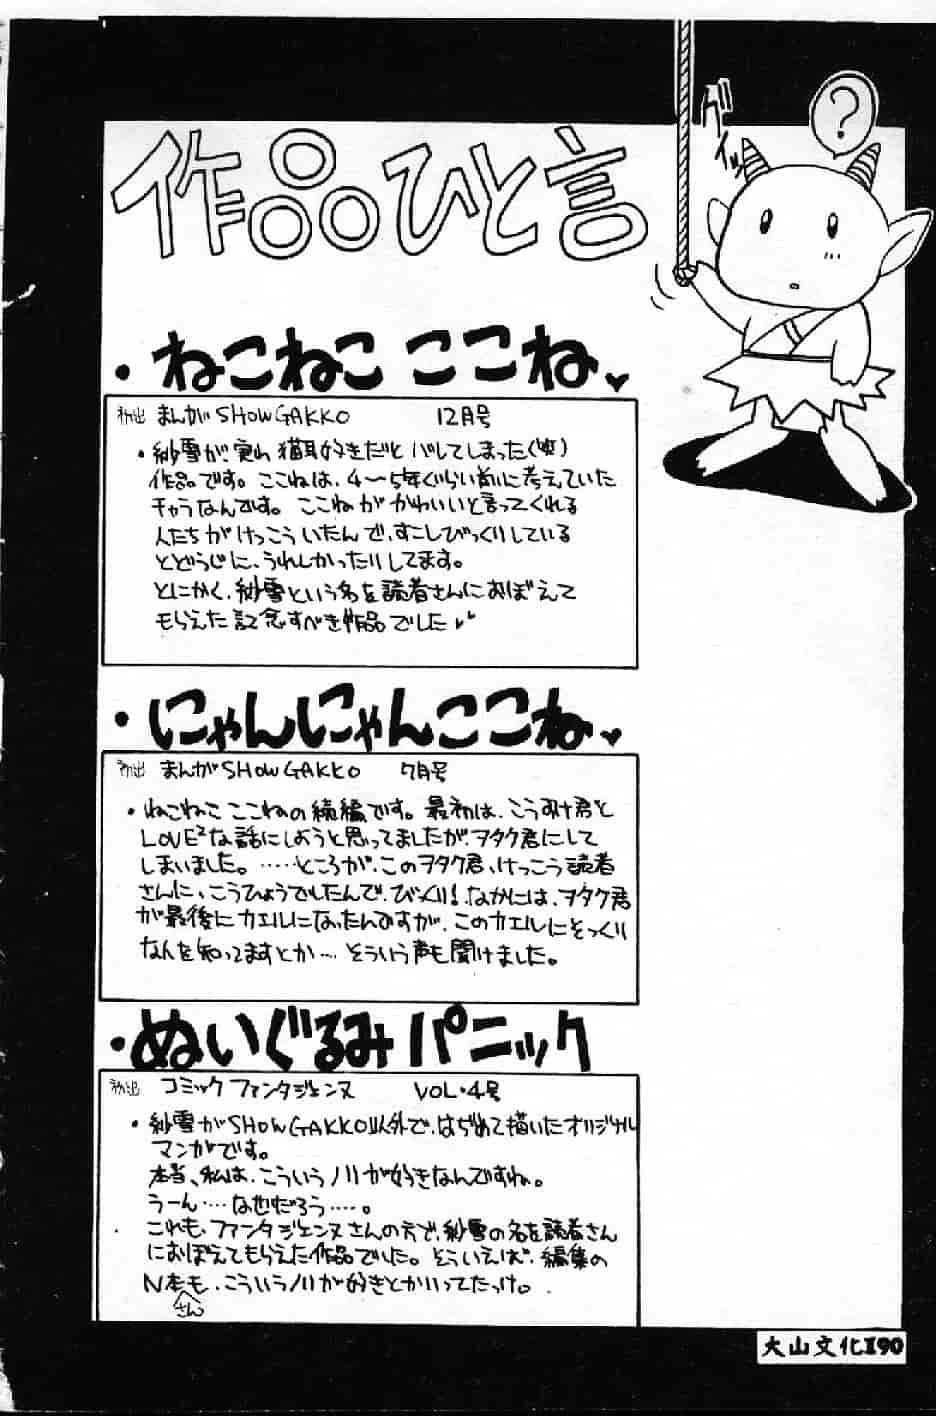 作品ひと言
?
グイッ
・ねこねこ ここね♥
初出 まんがSHOW GAKKO 12月号
・紗雪が、実は猫耳好きだとバレてしまった(笑)
作品です。ここねは、4〜5年ぐらい前に考えていた
キャラなんです。ここねがかわいいと言ってくれる
人たちがけっこういたんで、すこしびっくりしている
とどうじに、うれしかったりしてます。
とにかく、紗雪という名を読者さんにおぼえて
もらえた記念すべき作品でした♥
・にゃんにゃんここね♥
初出 まんがSHOW GAKKO 7月号
・ねこねこ ここねの続編です。最初は、こうすけ君と
LOVE²な話にしようと思ってましたが、ヲタク君にして
しまいました。……ところが、このヲタク君、けっこう読者
さんに、こうひょうでしたんで、びっくり!なかには、ヲタク君
が最後にカエルになったんですが、このカエルにそっくり
なんを知ってますとか…、そういう声も聞けました。
・ぬいぐるみパニック
初出 コミックファンタジェンヌ VOL・4号
・紗雪がSHOW GAKKO以外で、はぢめて描いたオリジナル
マンガです。
本当、私は、こういうノリが好きなんですね。
うーん…なぜだろう……。
これも、ファンタジェンヌさんの方で、紗雪の名を読者さん
におぼえてもらえた作品でした。そういえば、編集の
N本さんも、こういうノリが好きとかいってたっけ。
大山文化Ⅱ90